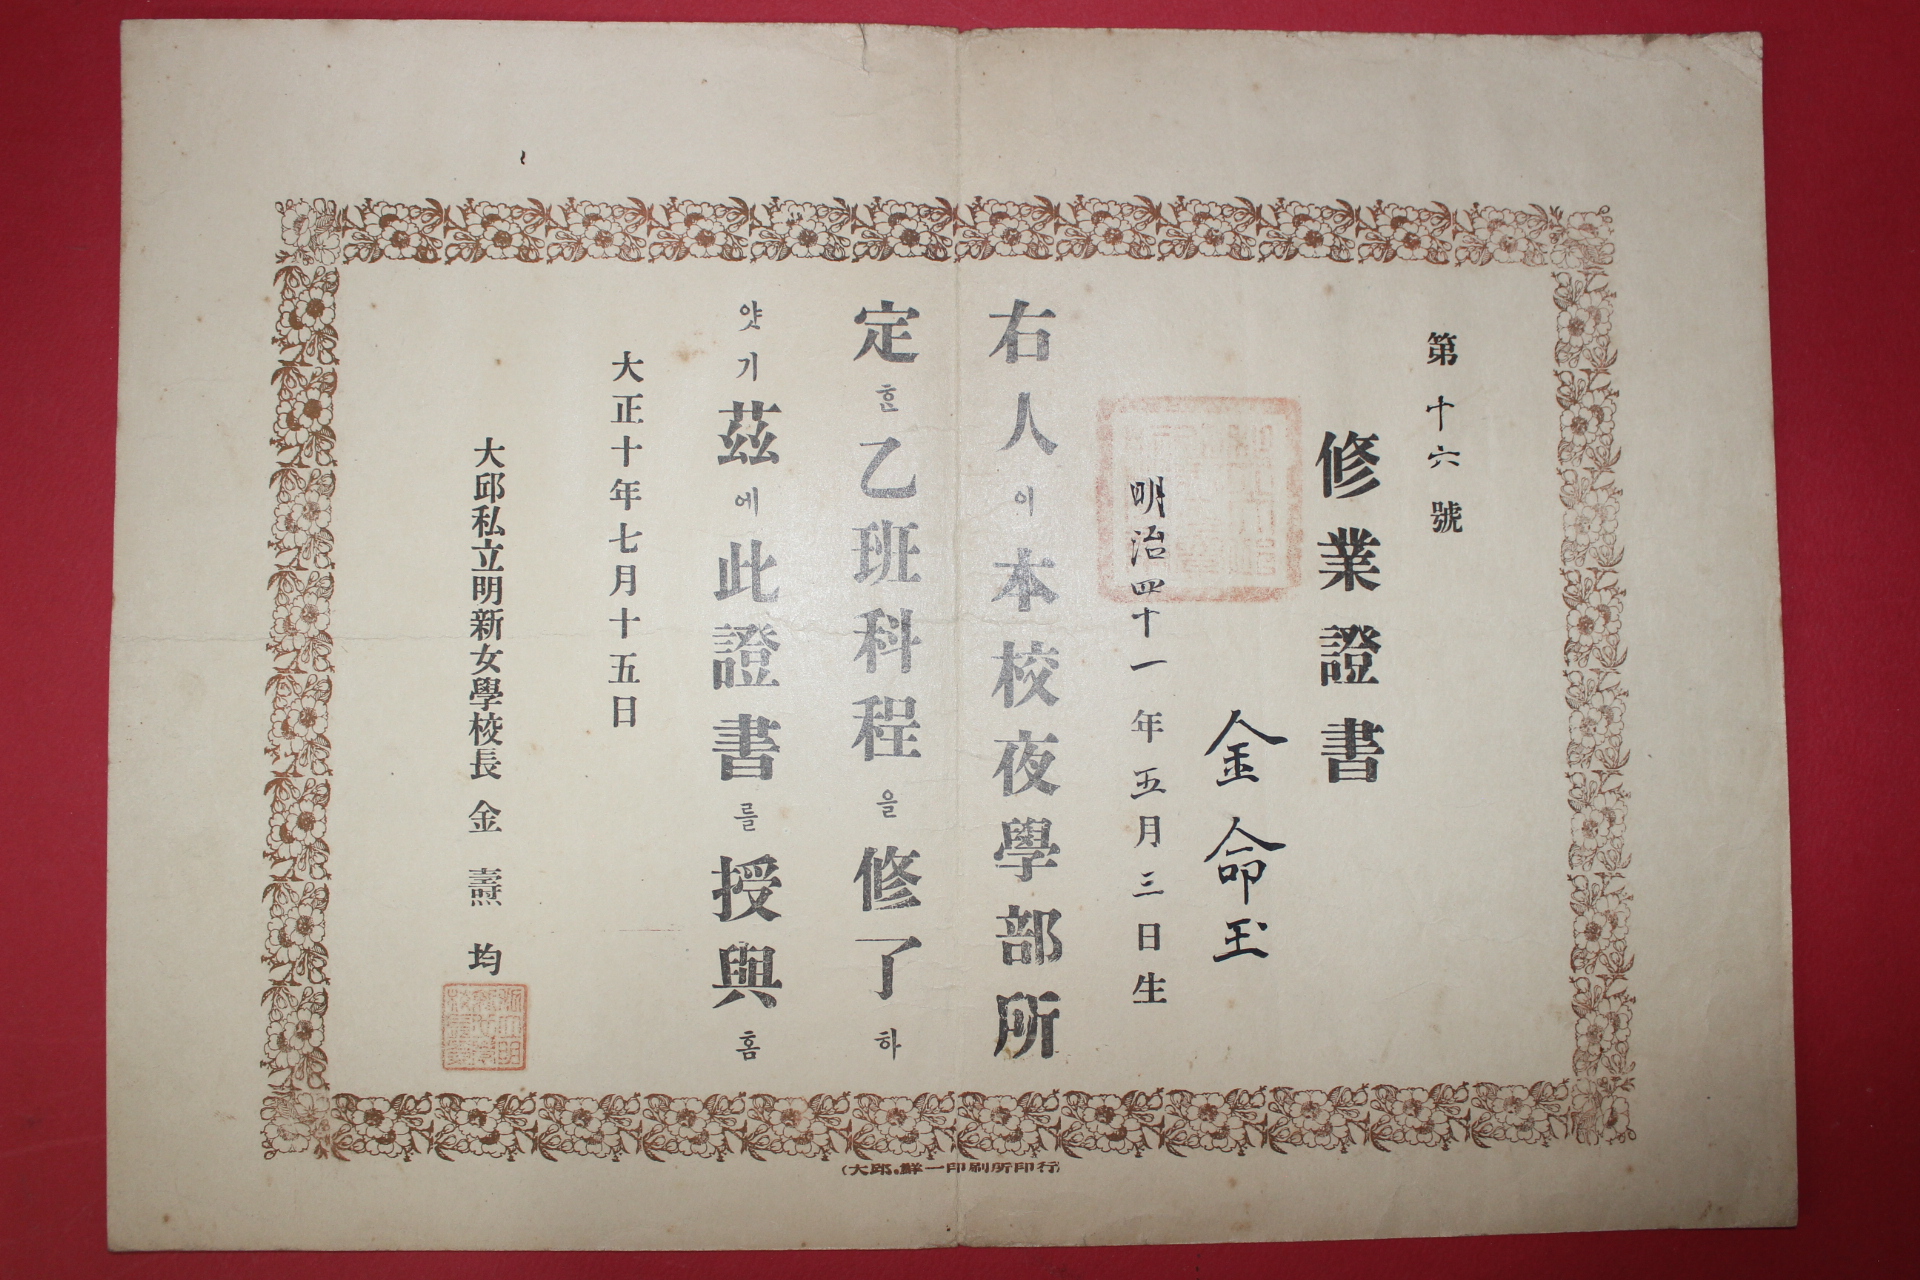 第十六號
修業證書
金命玉
明治四十一年五月三日生
右人이本校夜學部所
定호乙班科程을修了하
얏기玆에此證書를授與홈
大正十年七月十五日
大邱私立明新女學校長 金燾均
(大邱.鮮一印刷所印行)